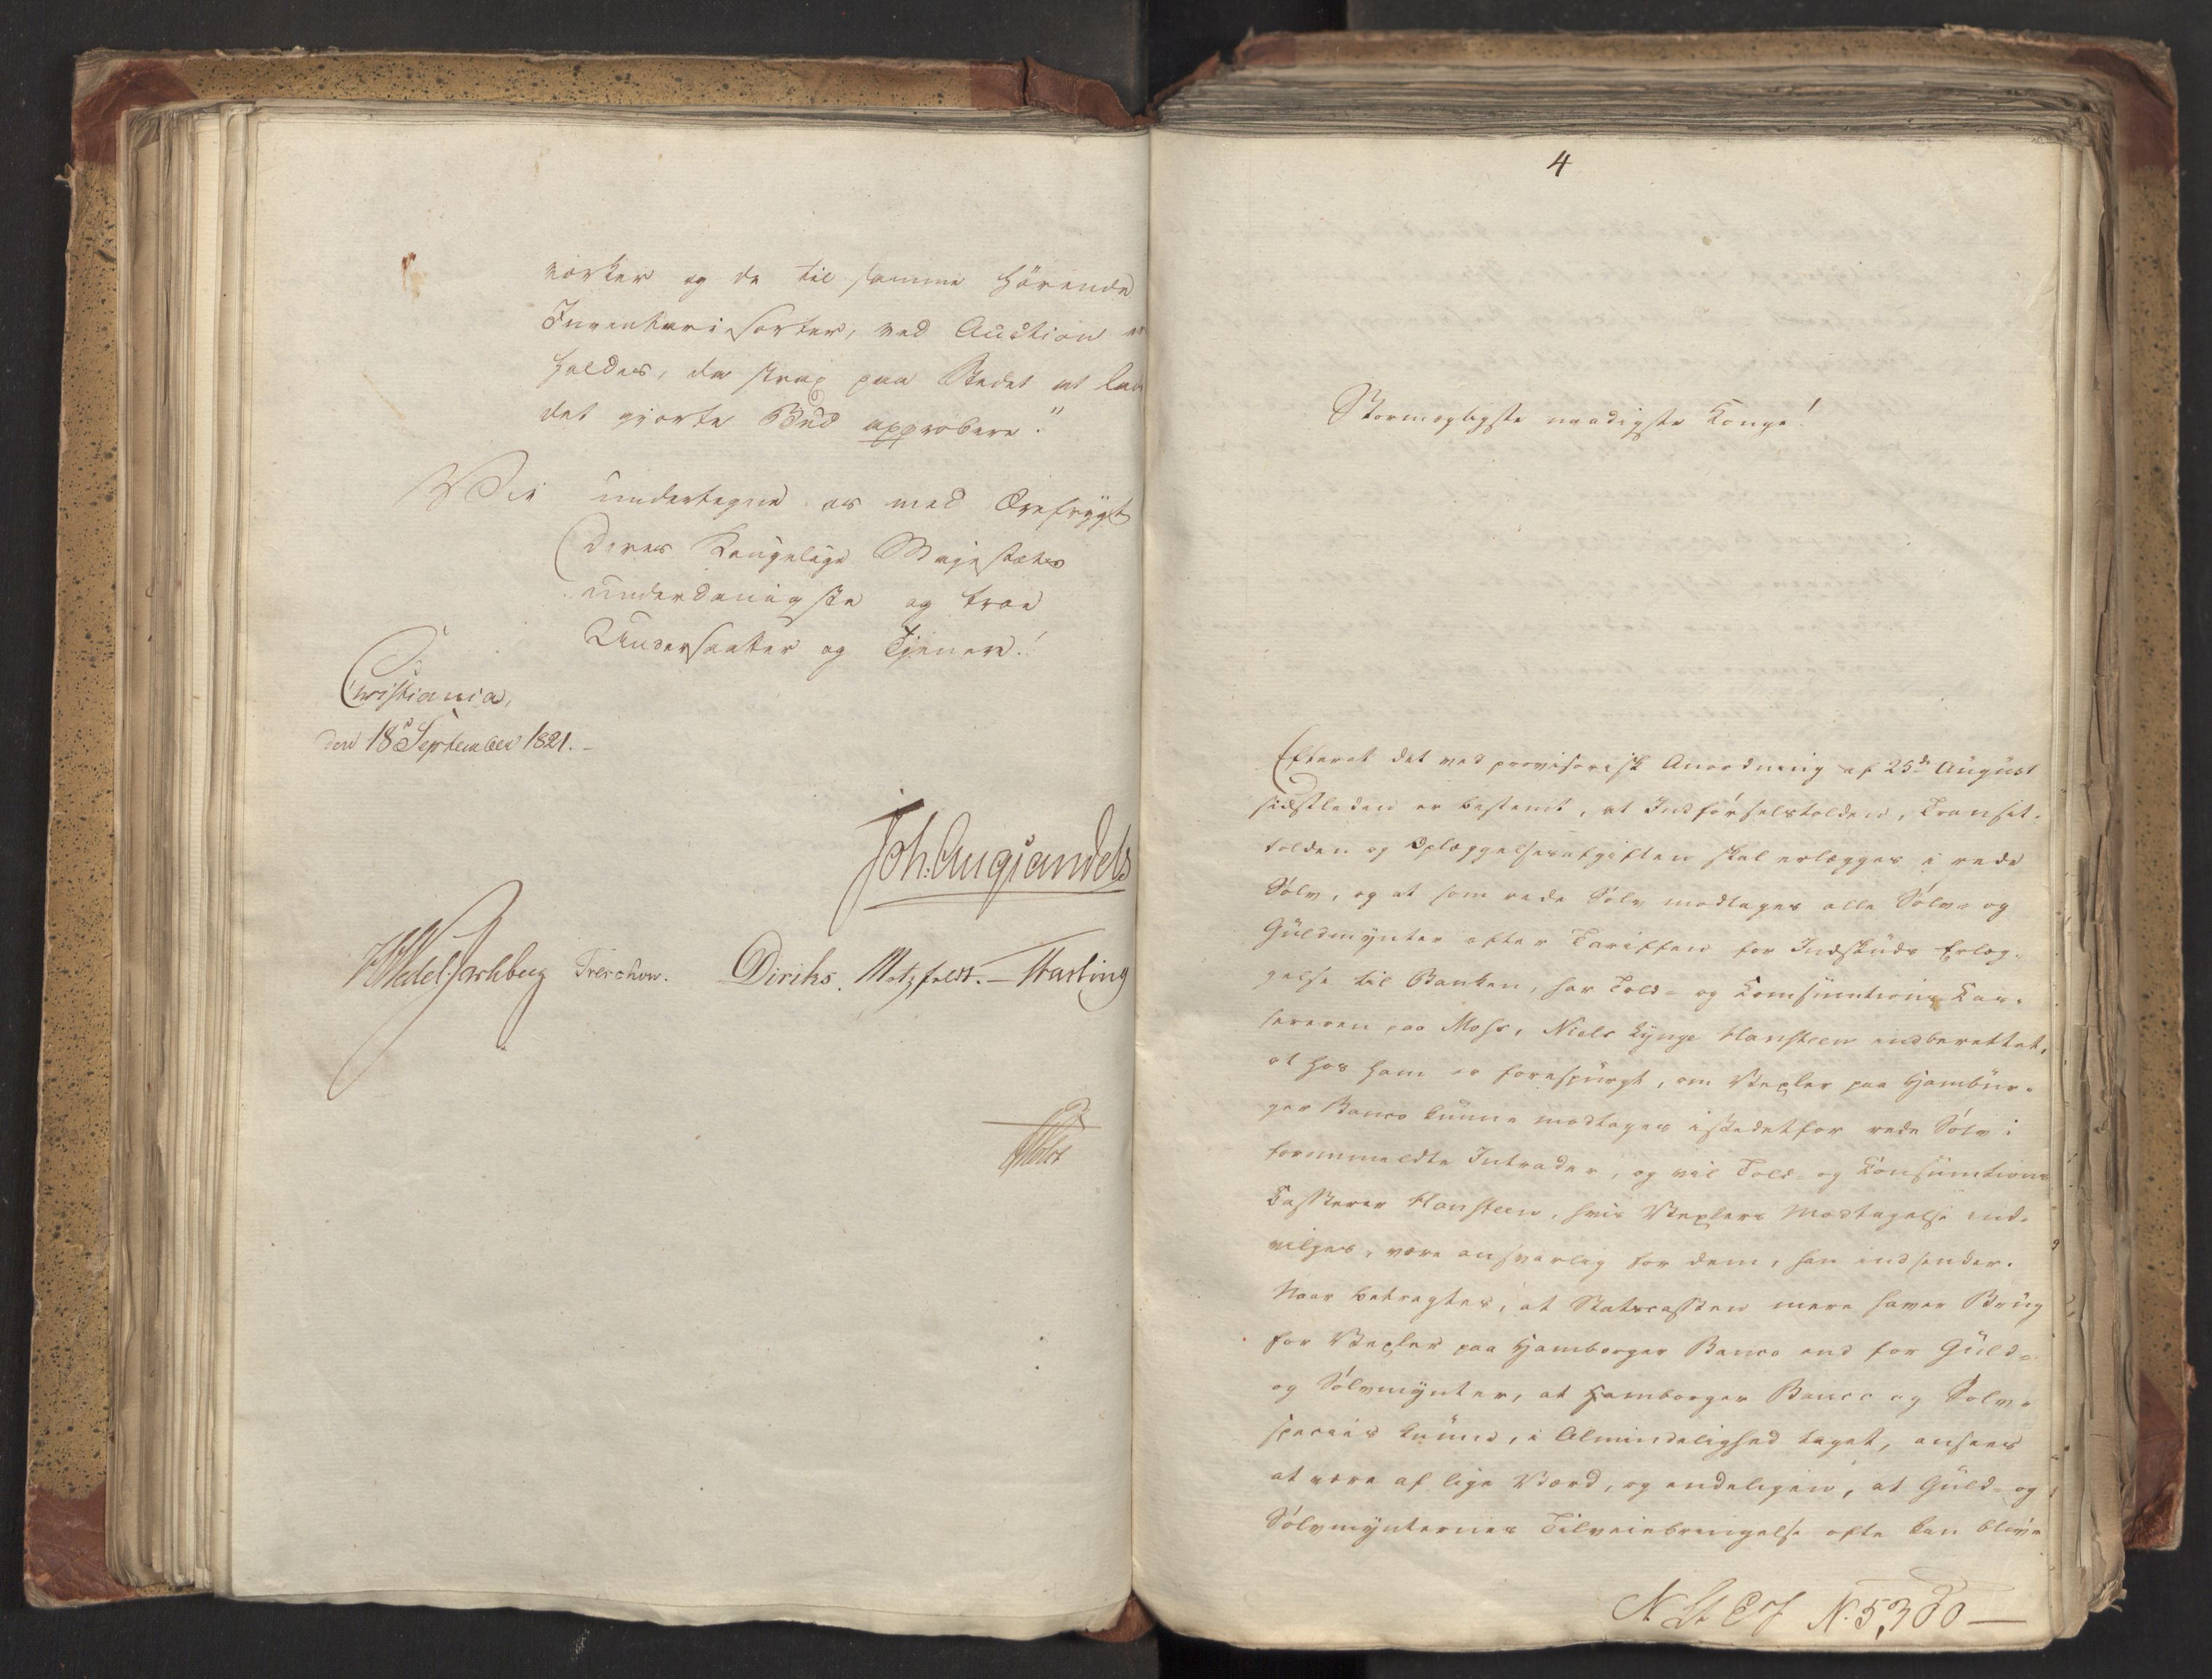 værker og de til samme hörende
Inventariisorter, ved Auction
holdes, da strax paa Stedet at
det gjorte Bud approbere."
Vi undertegne os med Ærefrygt
Deres Kongelige Majestæts
underdanigste og troe
Undersaatter og Tjenere!
Christiania,
den 18de September 1821.-
Joh: Aug Sandels
HWedel Jarlsberg Treschow. Diriks. Motzfeldt.- Hasting
Holst
4
Stormægtigste naadigste Konge!
Efterat det ved provisorisk Anordning af 25de August
sidstleden er bestemt, at Indförselstolden, Transit-
tolden og Oplæggelsesafgiften skal erlægges i rede
Sölv, og at som rede Sölv modtages alle Sölv- og
Guldmynter efter Tariffen for Indskuds Erlæg-
gelse til Banken, har Told- og Consumtions Cas-
sereren paa Moss, Niels Lynge Hansteen indberettet,
at hos ham er forespurgt, om Vexler paa Hambur-
ger Banco kunne modtages istedetfor rede Sölv i
forommeldte Intrader, og vil Told- og Consumtions
Casserer Hansteen, hvis Vexlers Modtagelse ind-
vilges, være ansvarlig for dem, han indsender.
Naar betragtes, at Statscassen mere haver Brug
for Vexler paa Hamborger Banco end for Guld-
og Sölvmynter, at Hamborger Banco og Sölv-
species kunne, i Almindelighed taget, ansees
at være af lige Værd, og endeligen, at Guld- og
Sölvmynternes Tilveiebringelse ofte kan blive
N. 5,300 —